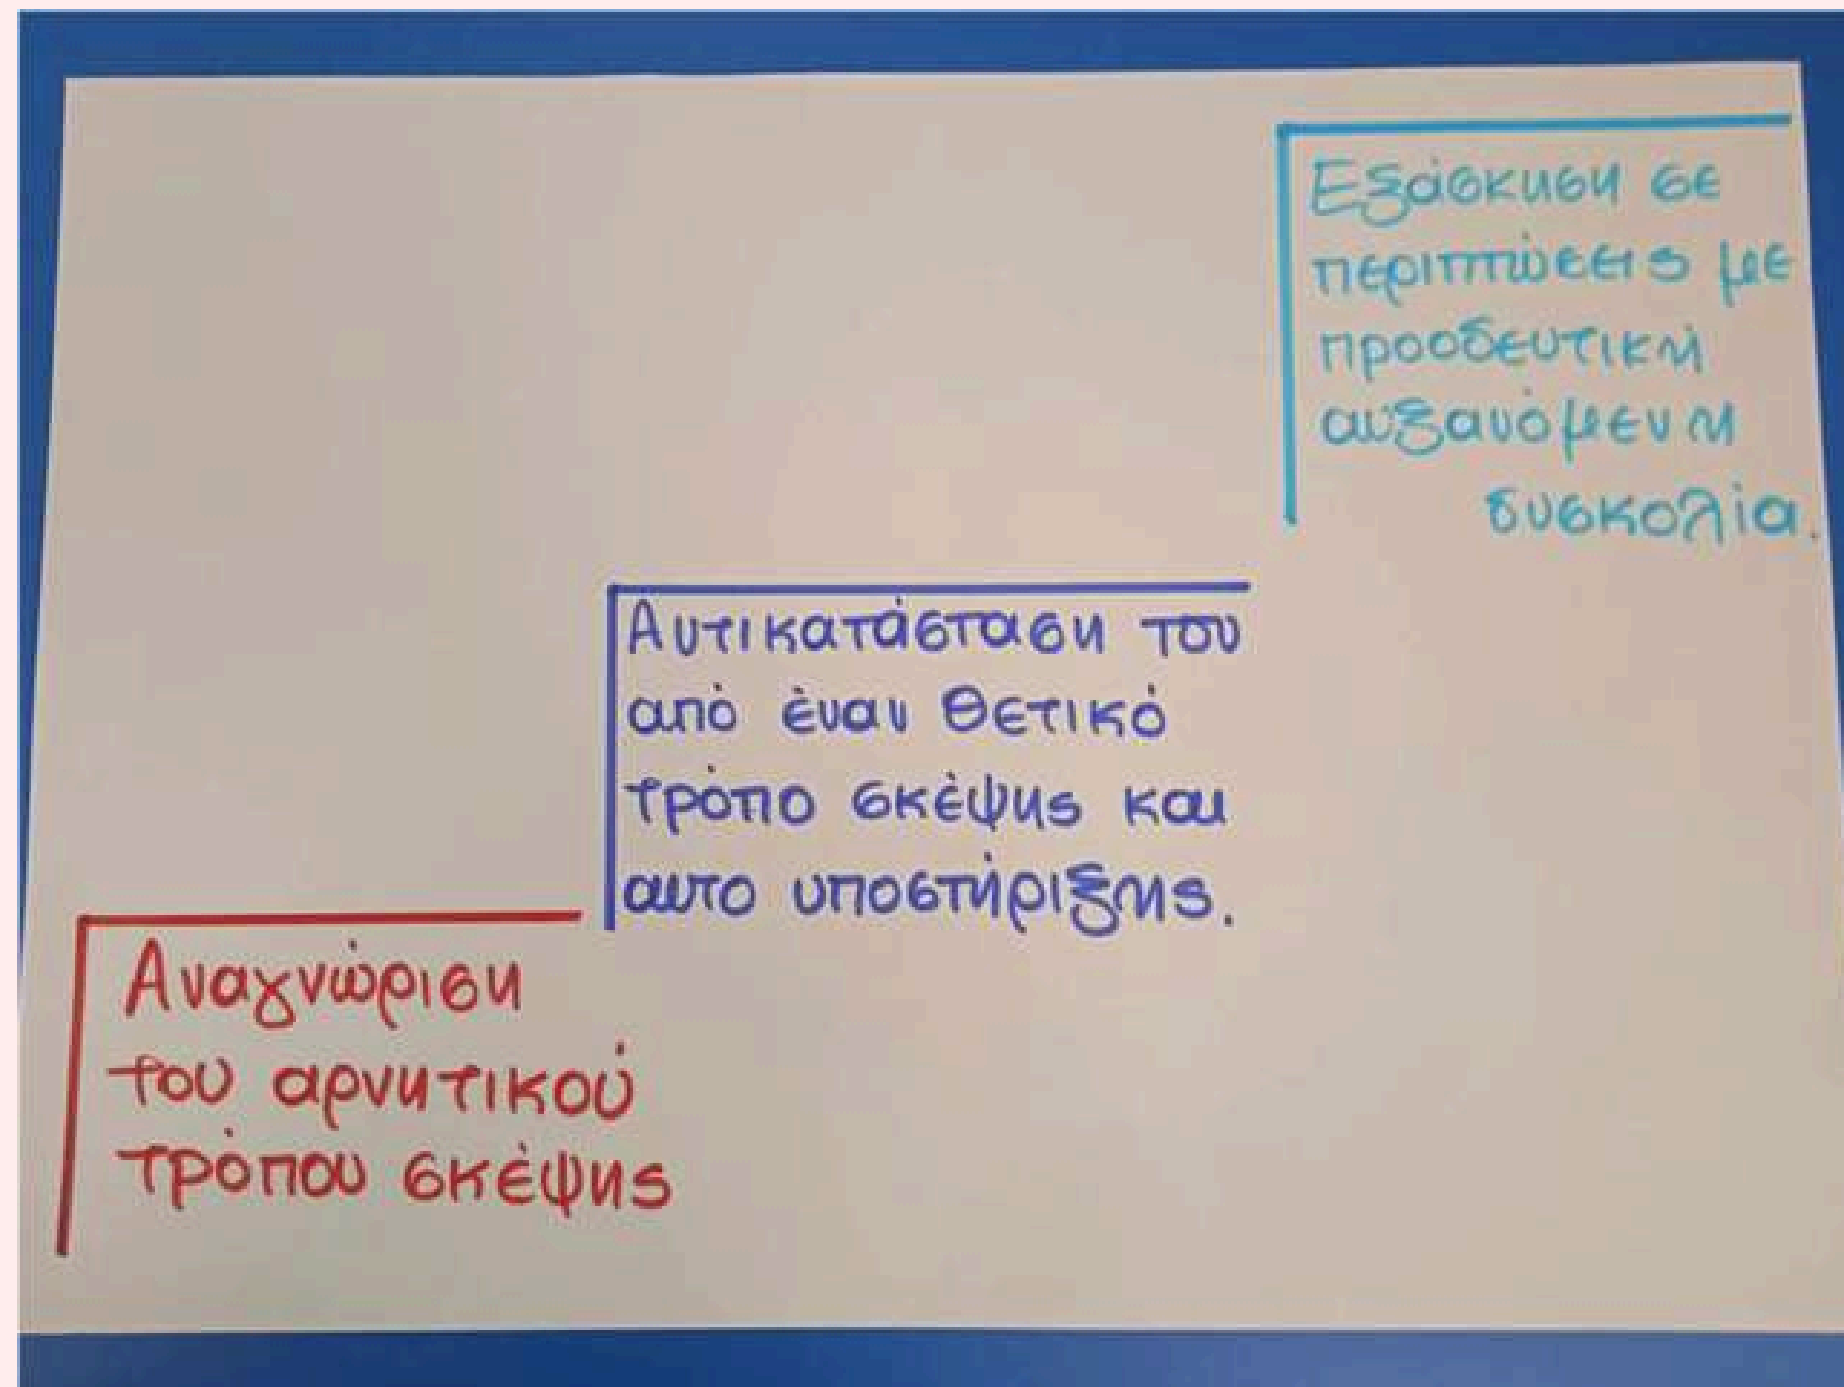 Εξάσκηση σε
περιπτώσεις με
προοδευτική
αυξανόμενη
δυσκολία.
Αντικατάσταση του
από έναν θετικό
τρόπο σκέψης και
αυτο υποστήριξης.
Αναγνώριση
του αρνητικού
τρόπου σκέψης